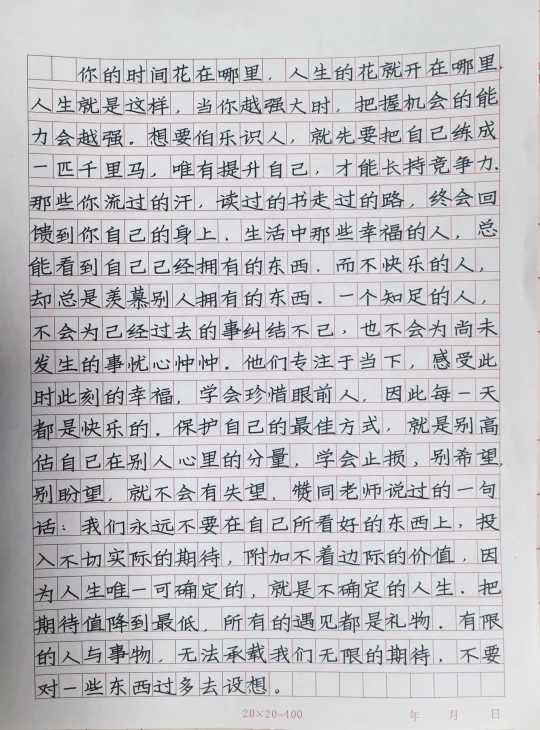 你的时间花在哪里，人生的花就开在哪里.
人生就是这样，当你越强大时，把握机会的能
力会越强.想要伯乐识人，就先要把自己练成
一匹千里马，唯有提升自己，才能长持竞争力.
那些你流过的汗，读过的书走过的路，终会回
馈到你自己的身上.生活中那些幸福的人，总
能看到自己己经拥有的东西.而不快乐的人，
却总是羡慕别人拥有的东西.一个知足的人，
不会为己经过去的事纠结不己，也不会为尚未
发生的事忧心忡忡.他们专注于当下，感受此
时此刻的幸福，学会珍惜眼前人，因此每一天
都是快乐的.保护自己的最佳方式，就是别高
估自己在别人心里的分量，学会止损，别希望，
别盼望，就不会有失望.赞同老师说过的一句
话：我们永远不要在自己所看好的东西上，投
入不切实际的期待，附加不着边际的价值，因
为人生唯一可确定的，就是不确定的人生.把
期待值降到最低，所有的遇见都是礼物.有限
的人与事物，无法承载我们无限的期待，不要
对一些东西过多去设想。
20×20=400 年 月 日